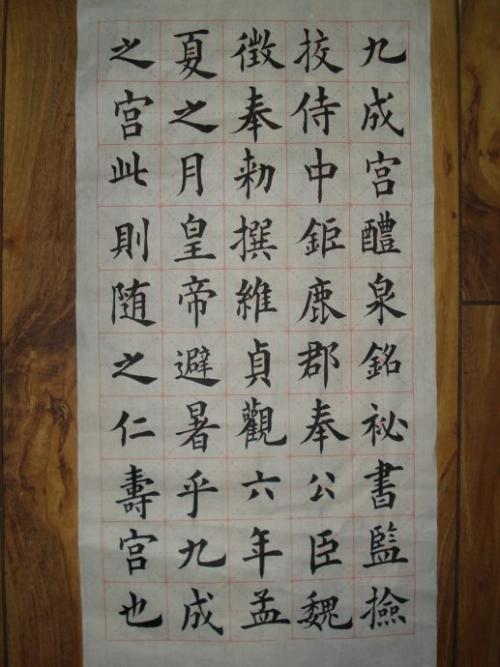 九成宫醴泉銘祕書監撿
挍侍中鉅鹿郡奉公臣魏
徴奉勑撰維貞觀六年孟
夏之月皇帝避暑乎九成
之宫此則随之仁壽宫也